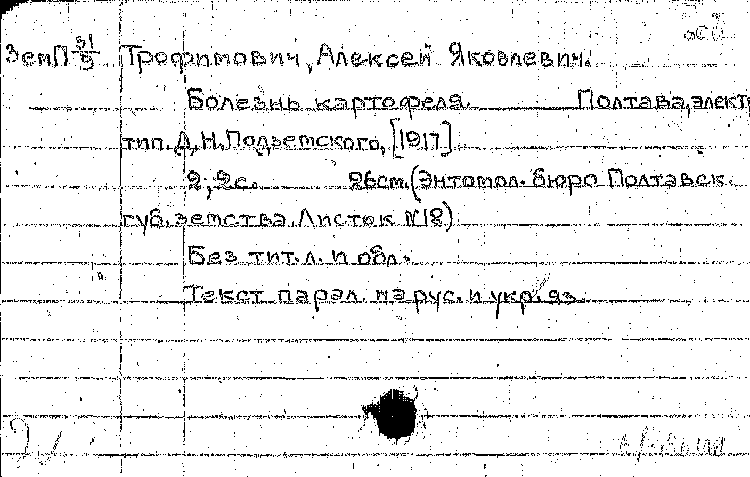 ЗемП 31/5 Трофимович, Алексей Яковлевич.
Болезнь картофеля. Полтава, электр
тип. Д.Н. Подземского, [1917]
2; 2с. 26см. (Энтомол. бюро Полтавск.
губ. земства. Листок №18)
Без тит. л. и обл.
Текст парал. на рус. и укр. яз.